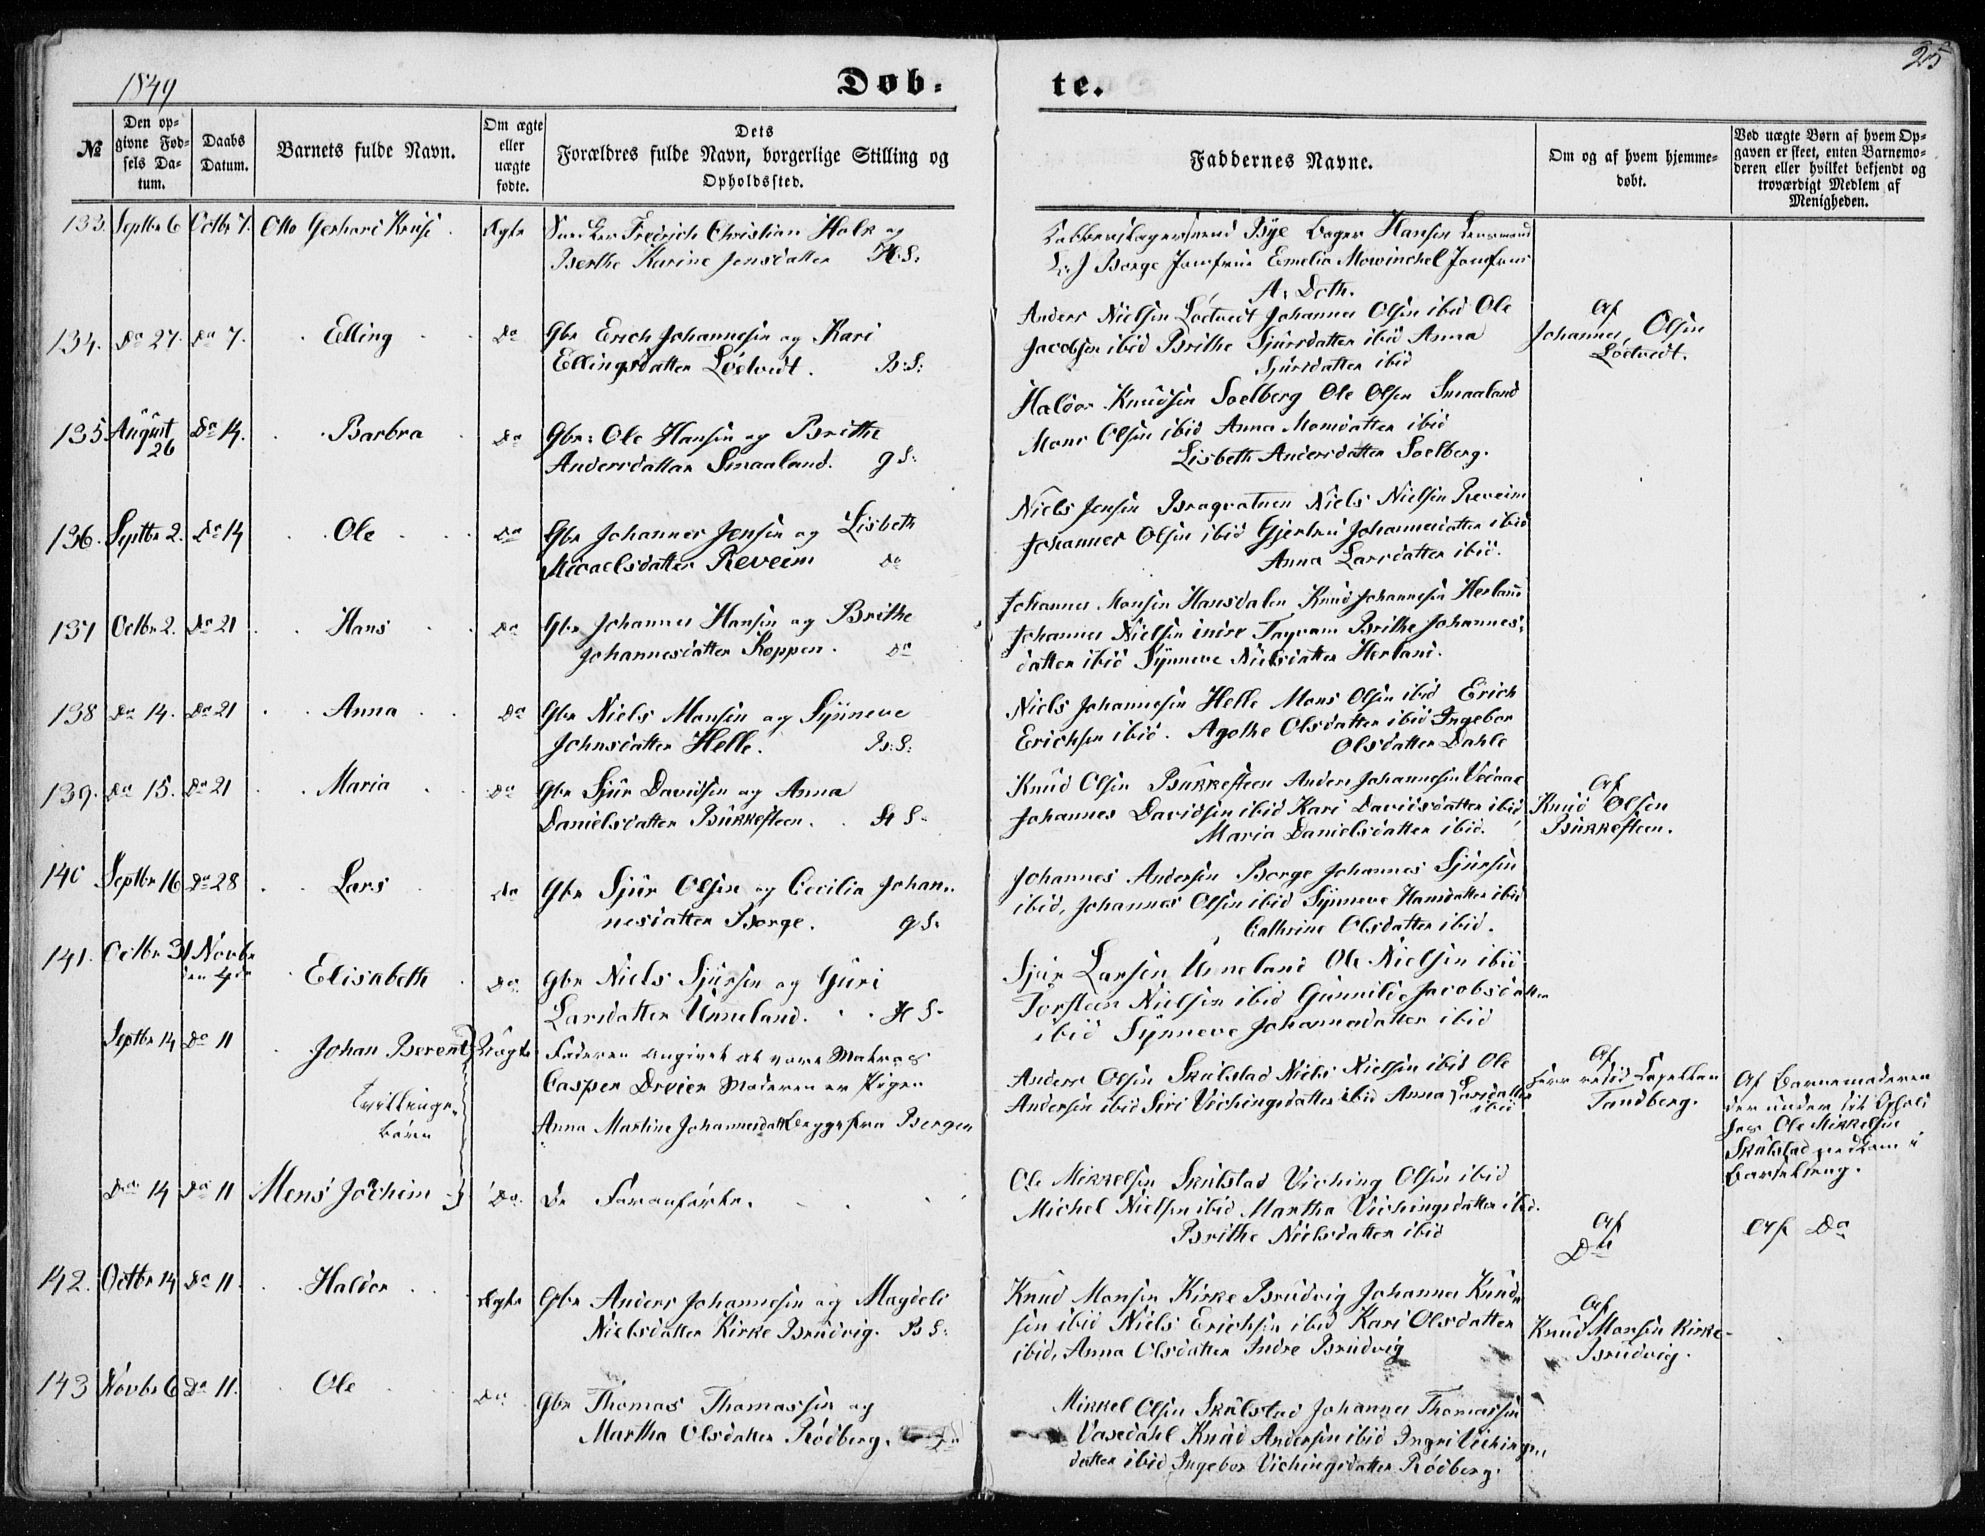 1849
Døb-
te.
25
№
Den op-
givne Fød-
sels Da-
tum.
Daabs
Datum.
Barnets fulde Navn.
Om ægte
eller
uægte
fødte.
Dets
Forældres fulde Navn, borgerlige Stilling og
Opholdssted.
Faddernes Navne.
Om og af hvem hjemme-
døbt.
Ved uægte Børn af hvem Op-
gaven er skeet, enten Barnemo-
deren eller hvilket bekjendt og
troværdigt Medlem af
Menigheden.
133. Septbr 6 Octbr 7. Otto Gerhard Ægte Fredrich Christian Holk og
Berthe Karine Jensdatter H:S:
Bye Hansen
Borge Jomfrue Emelia Mowinckel Jomfrue
A: Doth.
134. Do 27. Do 7. Elling Do Gbr Erich Johannesen og Kari
Ellingsdatter Lödvedt. B:S:
Anders Nielsen Lödtvedt Johannes Olsen ibid Ole
Jacobsen ibid Brithe Sjursdatter ibid Anna
Sjursdatter ibid
Af
Johannes Olsen
Lödtvedt.
135 August
26 Do 14. Barbra Do Gbr: Ole Hansen og Brithe
Andersdatter Smaaland. g S:
Haldor Knudsen Soelberg Ole Olsen Smaaland
Mons Olsen ibid Anna Monsdatter ibid
Lisbeth Andersdatter Soelberg.
136. Septbr 2. Do 14 Ole Do Gbr Johannes Jensen og Lisbeth
Micaelsdatter Reveim Do
Niels Jensen Bragvatnen Niels Nielsen Reveim
Johannes Olsen ibid Gjertru Johannesdatter ibid
Anna Larsdatter ibid.
137 Octbr 2. Do 21 Hans Do Gbr Johannes Hansen og Brithe
Johannesdatter Koppen. Do
Johannes Monsen Hansdalen Knud Johannesen Herland
Johannes Nielsen indre Brithe Johannes-
datter ibid Synneve Nielsdatter Herland.
138 Do 14. Do 21 Anna Do Gbr Niels Monsen og Synneve
Johnsdatter Helle. B:S:
Niels Johannesen Helle Mons Olsen ibid Erich
Erichsen ibid. Agothe Olsdatter ibid Ingebor
Olsdatter Dahle
139. Do 15. Do 21 Maria Do Gbr Sjur Davidsen og Anna
Danielsdatter Bukkesteen. H S-
Knud Olsen Bukkesteen Anders Johannesen Vedaae
Johannes Davidsen ibid Kari Davidsdatter ibid,
Maria Danielsdatter ibid.
Af
Knud Olsen
Bukkesteen.
140 Septbr 16 Do 28 Lars Do Gbr Sjur Olsen og Cecilia Johan-
nesdatter Borge. g S:
Johannes Andersen Borge Johannes Sjursen
ibid, Johannes Olsen ibid Synneve Hansdatter ibid
Cathrine Olsdatter ibid.
141. Octbr 31 Novbr
den 4de Elisabeth Do. Gbr Niels Sjursen og Guri
Larsdatter Unneland. H S-
Sjur Larsen Unneland Ole Nielsen ibid
Torsteen Nielsen ibid Gunnilde Jacobsdatter
ibid Synneve Johannesdatter ibid
Septbr 14 Do 11 Johan Berend Uægte Faderen angivet at være Matros
Casper Dreier Moderen er Pigen
Anna Martine Johannesdatter Brygge fra Bergen
Tvillinge-
børn
Anders Olsen Skulstad Niels Nielsen ibid Ole
Andersen ibid Siri Vichingsdatter ibid Anna Larsdatter
ibid
Af
Herr resid Capellan
Tandberg.
Af Barnemoderen
der under sit Ophold
hos Ole Mikkelsen
Skulstad nedkom i
Barselseng.
Do 14 Do 11 Mens Jochim Do. De Foranførte.
Ole Mikkelsen Skulstad Viching Olsen ibid
Michel Nielsen ibid Martha Vichingsdatter ibid.
Brithe Nielsdatter ibid
Af
Do
Af Do
142. Octbr 14 Do 11. Haldor Ægte Gbr Anders Johannesen og Magdeli
Nielsdatter Kirke Brudvig. B S:
Knud Monsen Kirke Brudvig Johannes Knud-
sen ibid Niels Erichsen ibid Kari Olsdatter
ibid, Anna Olsdatter Indre Brudvig
Af
Knud Monsen Kirke-
Brudvig.
143 Novbr 6 Do 11. Ole Do Gbr Thomas Thomassen og
Martha Olsdatter Rödberg.
Mikkel Olsen Skulstad Johannes Thomassen
Vasedahl Knud Andersen ibid Ingri Vichings-
datter ibid Ingebor Vichingsdatter Rödberg.